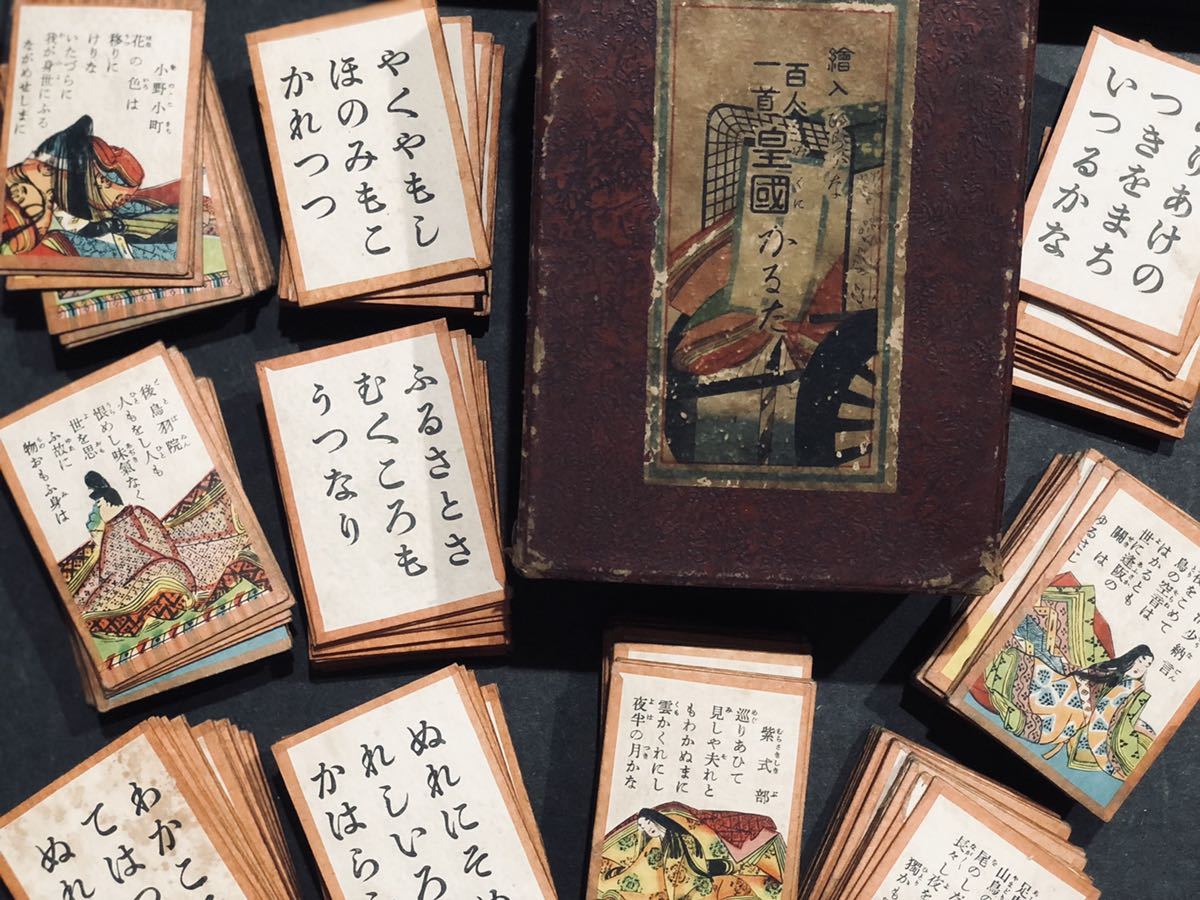 小野小町
花の色は
移りに
けりな
いたづらに
我が身世にふる
ながめせしまに
やくやもし
ほのみもこ
かれつつ
繪入
百人
一首
皇國かるた
りあけの
つきをまち
いつるかな
後鳥羽院
人もをし人も
恨めし味氣なく
世を思
ふ故に
物おもふ身は
ふるさとさ
むくころも
うつなり
少納言
をこめて
鳥の空音は
はかるとも
世に逢阪の
關は
ゆるさじ
わかこ
てはつ
ぬれ
ぬれにそぬ
れしいろ
かはら
紫式部
巡りあひて
見しや夫れと
もわかぬまに
雲かくれにし
夜半の月かな
足
山鳥
尾のしだ
長々し夜
獨